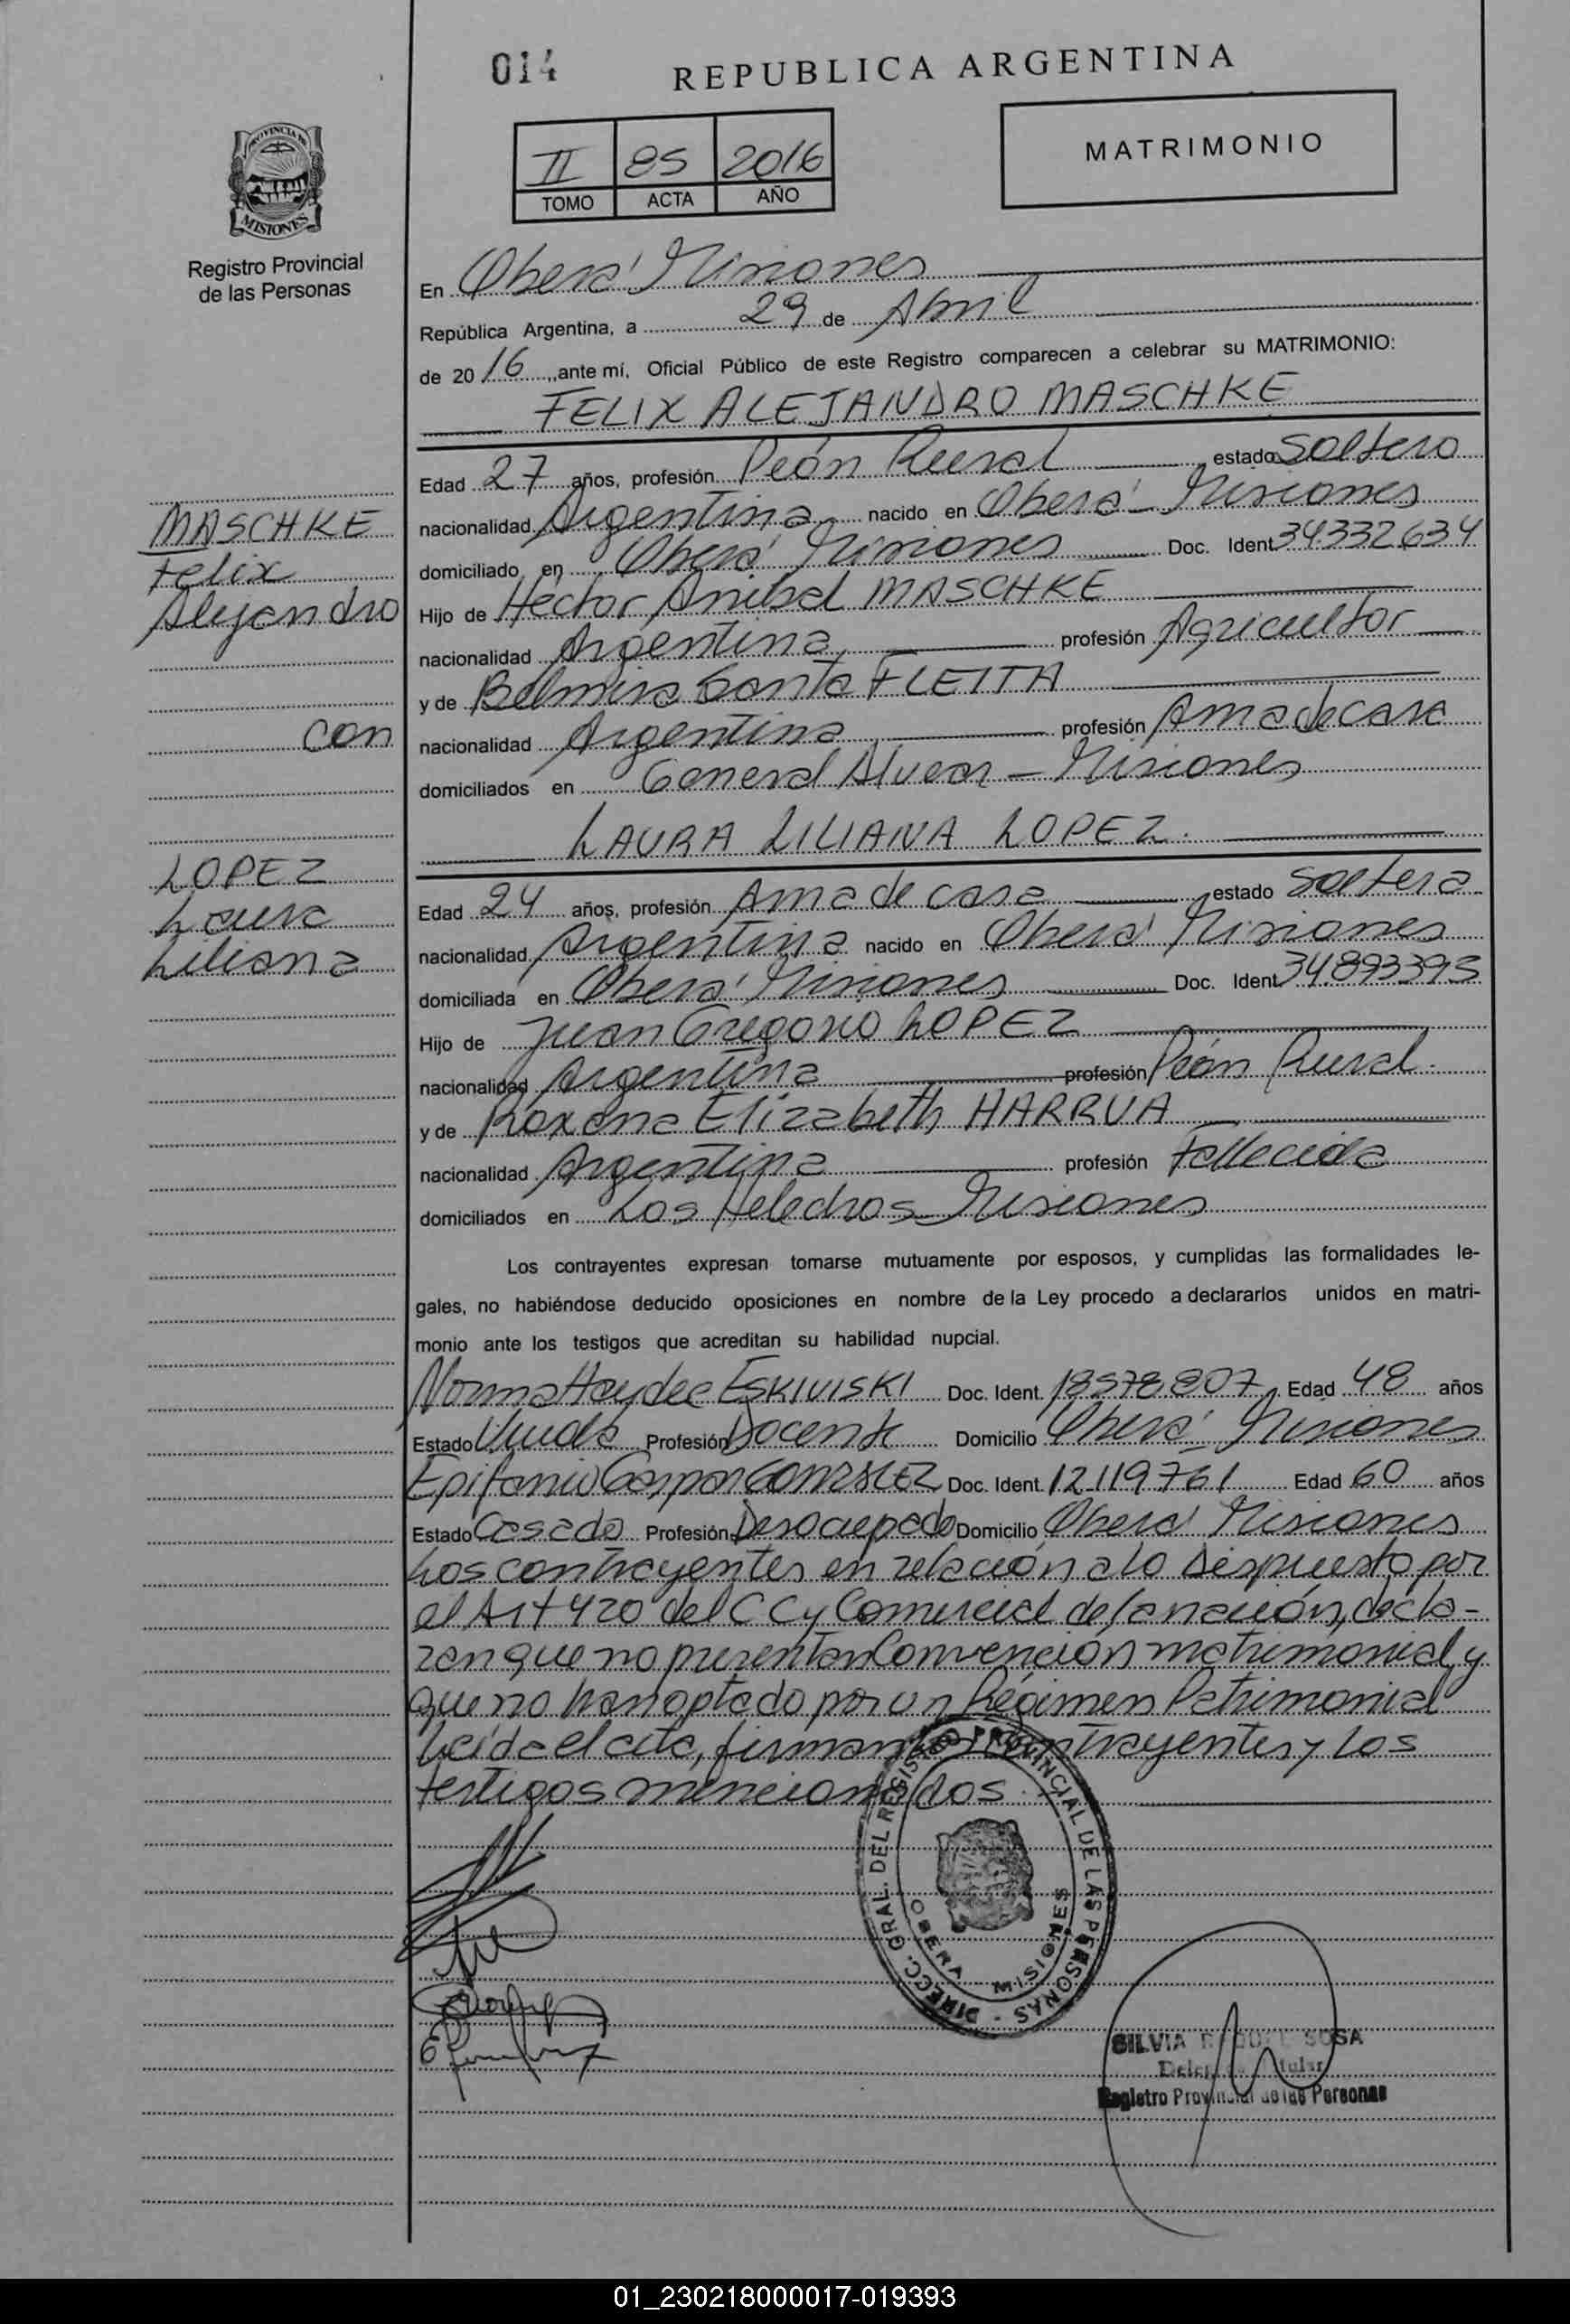 014
REPUBLICA ARGENTINA
II 85 2016
TOMO ACTA AÑO
MATRIMONIO
PROVINCIA DE
MISIONES
Registro Provincial
de las Personas
En Oberá Misiones
República Argentina, a 29 de Abril
de 2016, ante mí, Oficial Público de este Registro comparecen a celebrar su MATRIMONIO:
FELIX ALEJANDRO MASCHKE
Edad 27 años, profesión Peón Rural estado Soltero
nacionalidad Argentina nacido en Oberá - Misiones
domiciliado en Oberá Misiones Doc. Ident. 34.332.634
Hijo de Héctor Anibal MASCHKE
nacionalidad Argentina profesión Agricultor
y de Belmira Santa FLEITA
nacionalidad Argentina profesión Ama de casa
domiciliados en General Alvear - Misiones
MASCHKE
Felix
Alejandro
con
LOPEZ
Laura
Liliana
LAURA LILIANA LOPEZ.
Edad 24 años, profesión Ama de casa estado Soltera
nacionalidad Argentina nacido en Oberá Misiones
domiciliada en Oberá Misiones Doc. Ident. 34.893393
Hijo de Juan Gregorio LOPEZ
nacionalidad Argentina profesión Peón Rural.
y de Roxana Elizabeth HARRUA
nacionalidad Argentina profesión Fallecida
domiciliados en Los Helechos - Misiones
Los contrayentes expresan tomarse mutuamente por esposos, y cumplidas las formalidades le-
gales, no habiéndose deducido oposiciones en nombre de la Ley procedo a declararlos unidos en matri-
monio ante los testigos que acreditan su habilidad nupcial.
Norma Haydee ESKIVISKI Doc. Ident. 18578807 Edad 48 años
Estado Viuda Profesión Docente Domicilio Oberá Misiones
Epifanio Gaspar GONZALEZ Doc. Ident. 12.119.761 Edad 60 años
Estado Casado Profesión Desocupado Domicilio Oberá Misiones
Los contrayentes en relación a lo dispuesto por
el Art 420 del CC y Comercial de la nación, decla-
ran que no presentan Convención matrimonial y
que no han optado por un Régimen Patrimonial
Leída el acta, firman los contrayentes y los
testigos mencionados.
DIRECC. GRAL. DEL REGISTRO PROVINCIAL DE LAS PERSONAS -
OBERA - MISIONES
SILVIA SOSA
Registro Provincial de las Personas
01_230218000017-019393